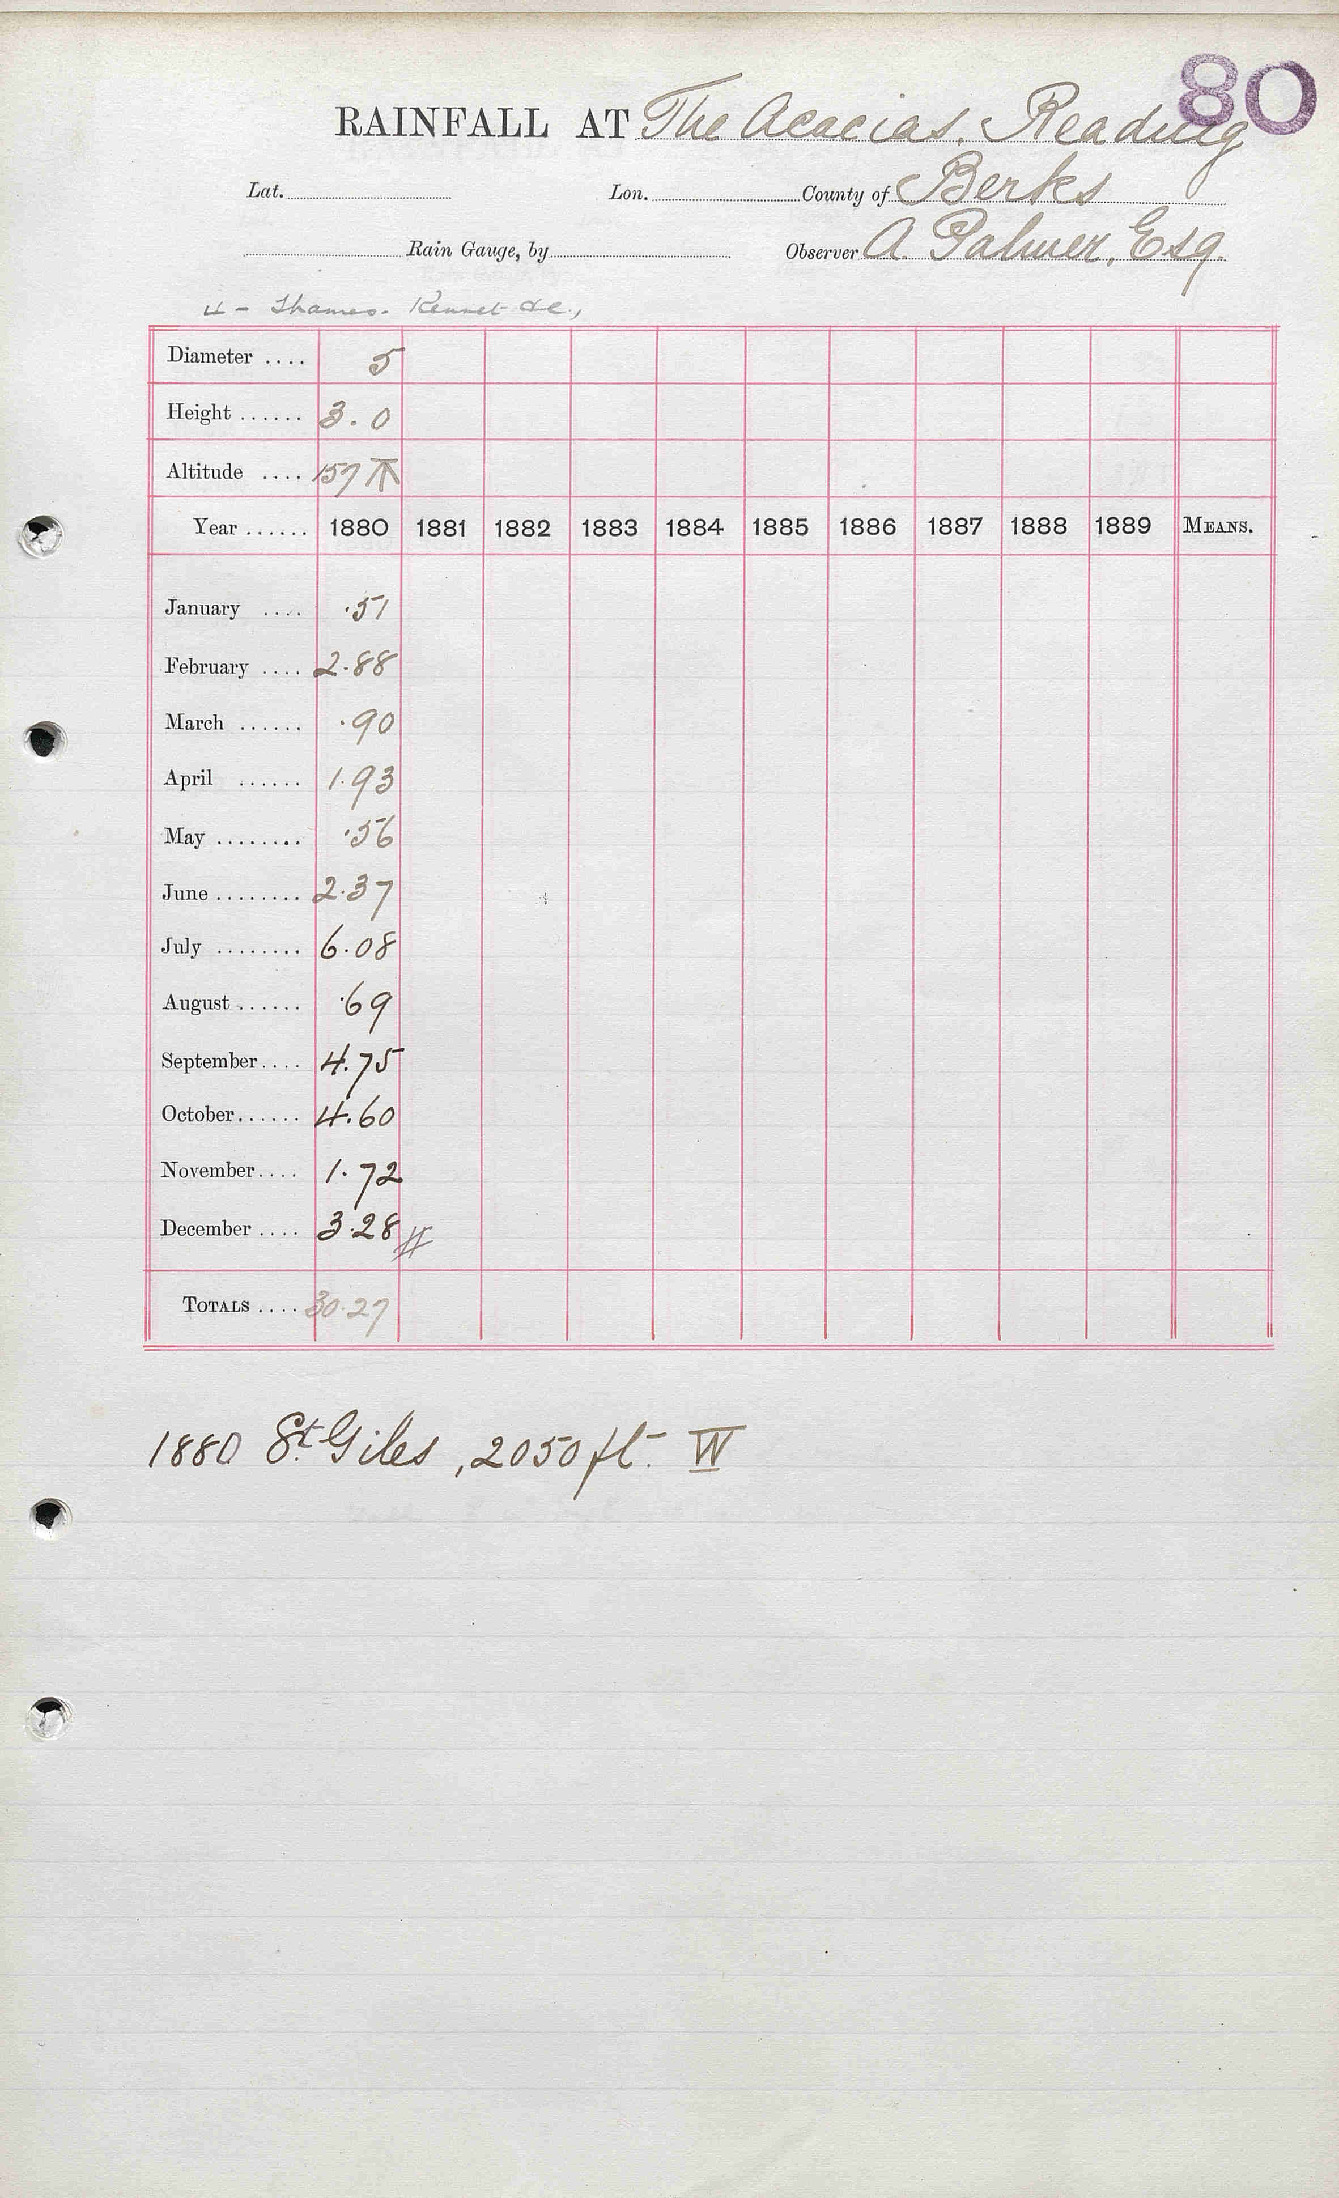 80
RAINFALL AT The Acacias, Reading
Lat. Lon. County of Berks
Rain Gauge, by Observer A. Palmer, Esq.
4 - Thames. Kennet &c.,
Diameter .... 5
Height ...... 3.0
Altitude .... 157
Year ...... 1880 1881 1882 1883 1884 1885 1886 1887 1888 1889 MEANS.
January .... .51
February .... 2.88
March ...... .90
April ...... 1.93
May ........ .56
June ........ 2.37
July ........ 6.08
August ...... .69
September .... 4.75
October ...... 4.60
November .... 1.72
December .... 3.28
TOTALS .... 30.27
1880 St. Giles, 2050 ft. W